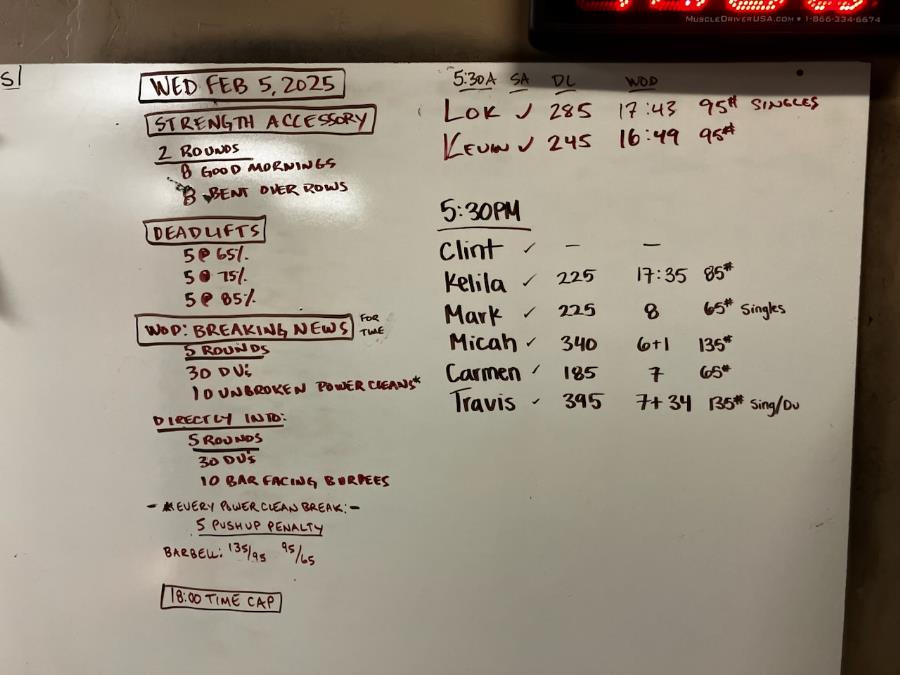 MUSCLEDRIVERUSA.COM • 1-866-334-6674
S
WED FEB 5, 2025
STRENGTH ACCESSORY
2 ROUNDS
8 GOOD MORNINGS
8 BENT OVER ROWS
DEADLIFTS
5 @ 65%
5 @ 75%
5 @ 85%
WOD: BREAKING NEWS FOR TIME
5 ROUNDS
30 DU's
10 UNBROKEN POWER CLEANS*
DIRECTLY INTO:
5 ROUNDS
30 DU's
10 BAR FACING BURPEES
- *EVERY POWER CLEAN BREAK: -
5 PUSHUP PENALTY
BARBELL: 135/95 95/65
18:00 TIME CAP
5:30A SA DL WOD
LOK ✓ 285 17:43 95# SINGLES
KEVIN ✓ 245 16:49 95#
5:30PM
Clint ✓ - -
Kelila ✓ 225 17:35 85#
Mark ✓ 225 8 65# Singles
Micah ✓ 340 6+1 135#
Carmen ✓ 185 7 65#
Travis ✓ 395 7+34 135# Sing/Du